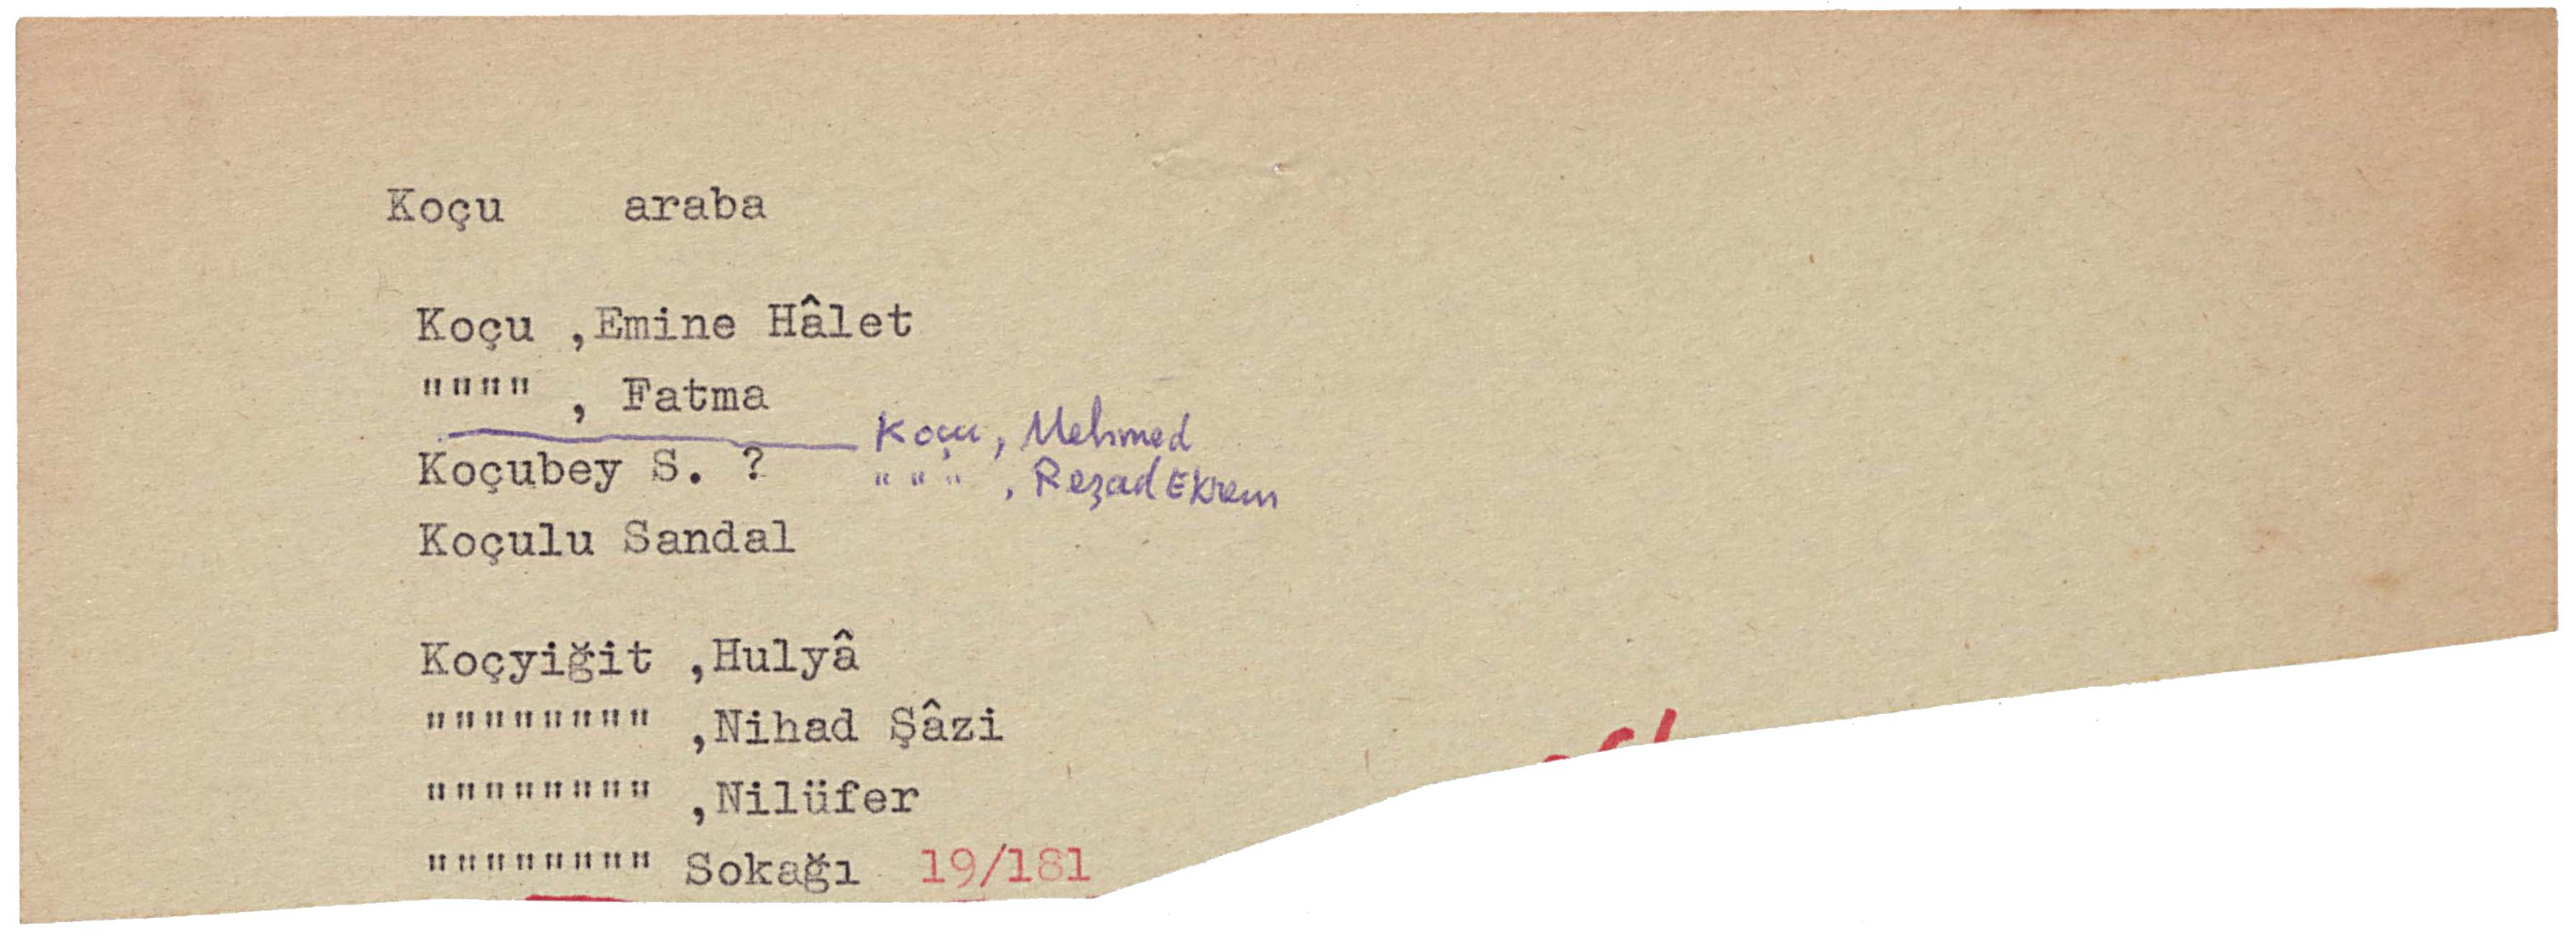 Koçu araba
Koçu ,Emine Hâlet
"""" , Fatma
Koçu, Mehmed
""" , Reşad Ekrem
Koçubey S. ?
Koçulu Sandal
Koçyiğit ,Hulyâ
"""""""" ,Nihad Şâzi
"""""""" ,Nilüfer
"""""""" Sokağı 19/181